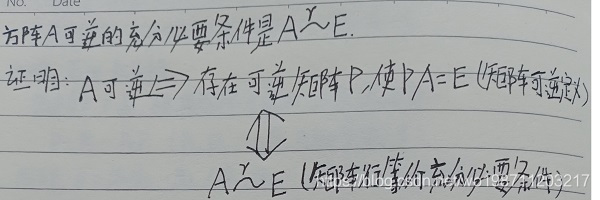 No.
Date
方阵A可逆的充分必要条件是A r~ E.
证明: A可逆 ⟺ 存在可逆矩阵P,使PA=E (矩阵可逆定义)
⇕
A r~ E (矩阵行等价充分必要条件)